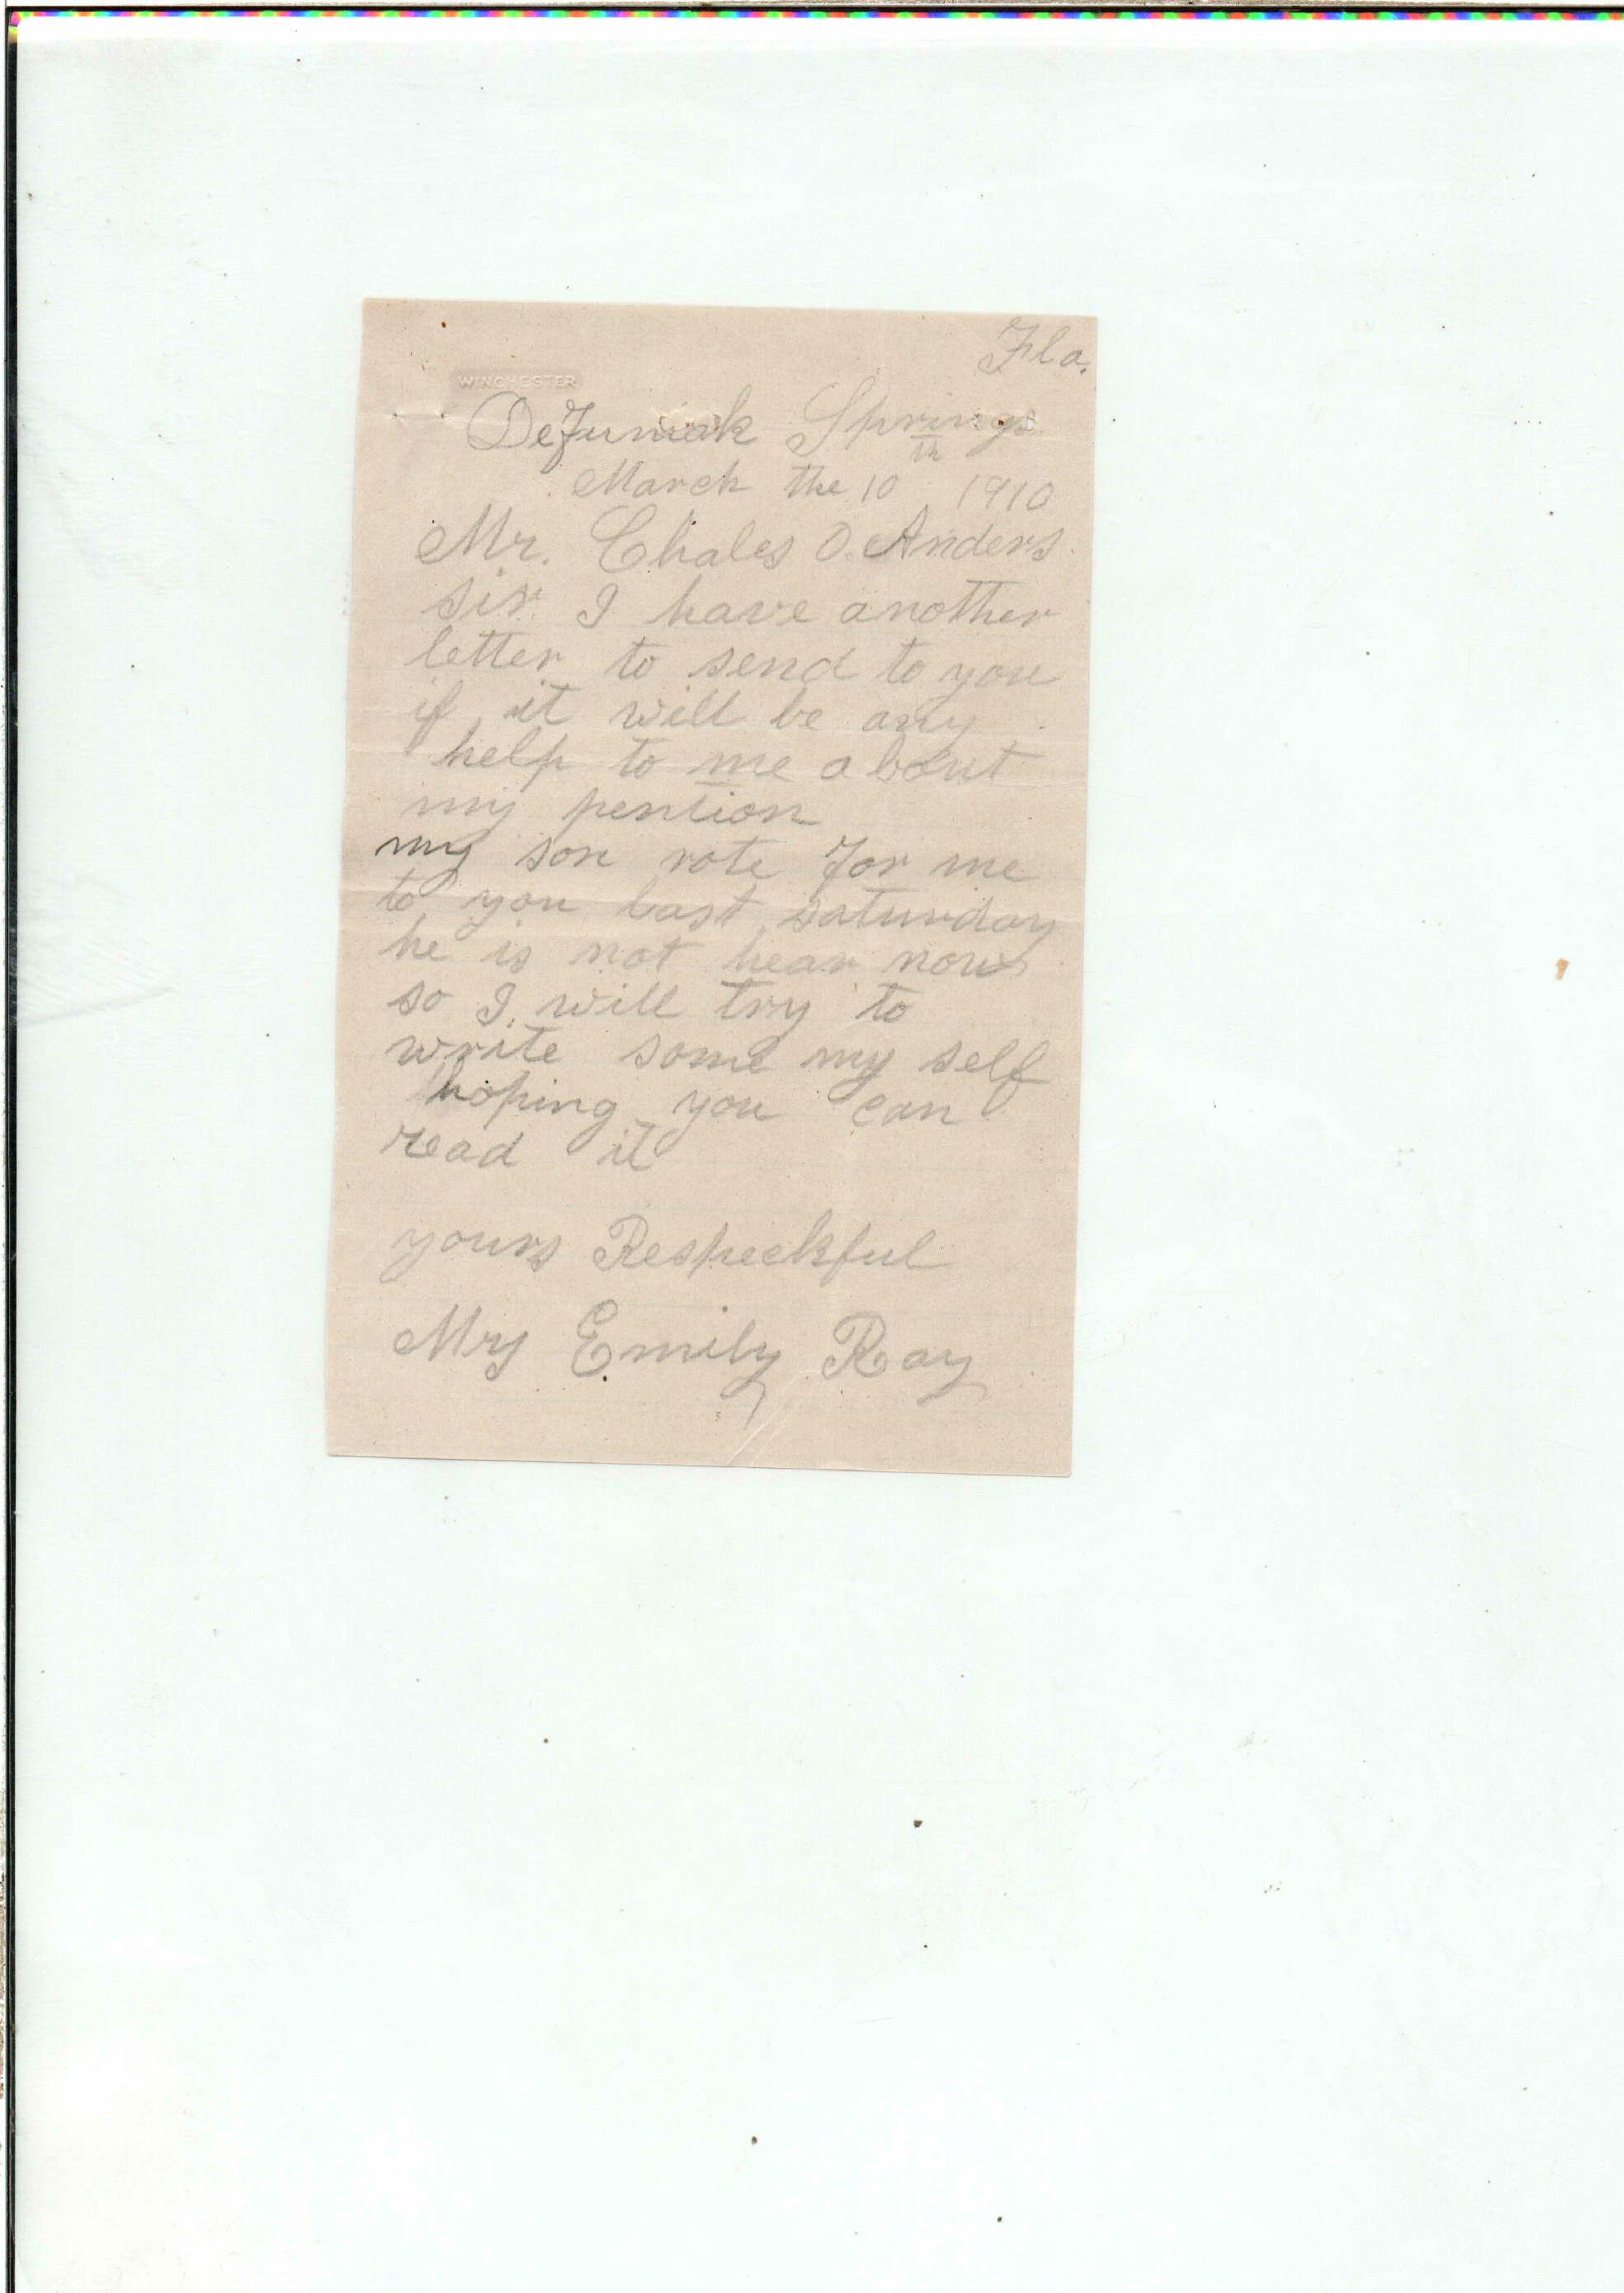 Fla.
WINCHESTER
DeFuniak Springs
March the 10th 1910
Mr. Chales O. Anders
sir I have another
letter to send to you
if it will be any
help to me about
my pention
my son rote for me
to you last saturday
he is not hear now
so I will try to
write some my self
hoping you can
read it
yours Respeckful
Mrs Emily Ray